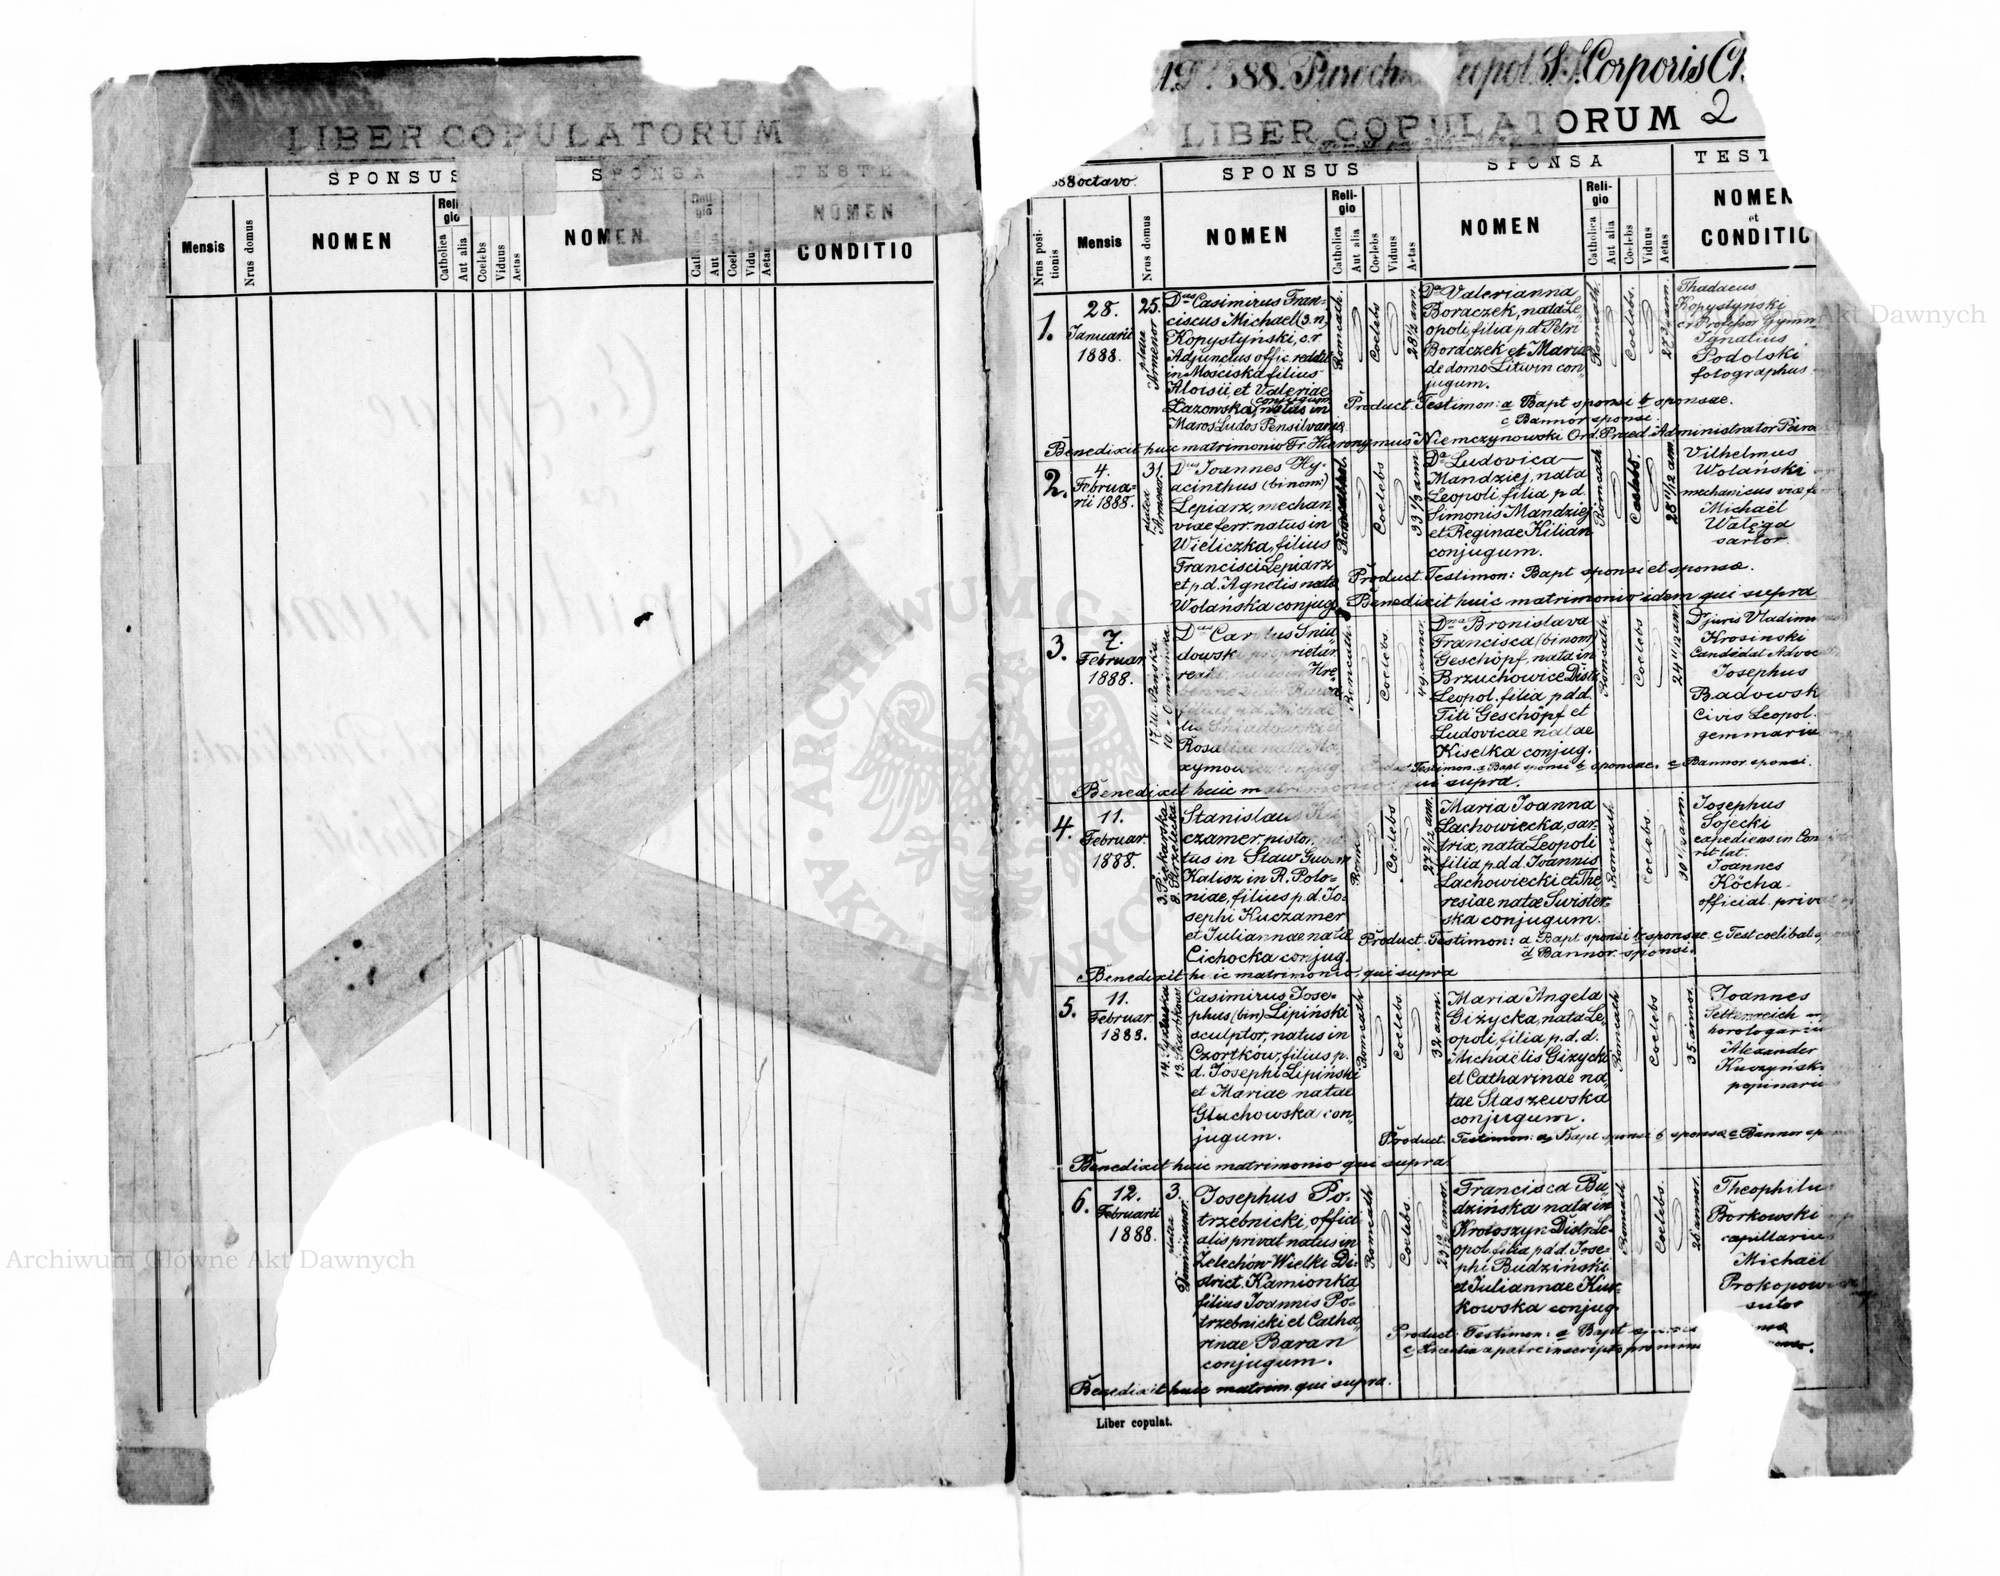 LIBER COPULATORUM
SPONSUS
SPONSA
TESTE
Mensis
Nrus domus
NOMEN
Religio
Catholica
Aut alia
Coelebs
Viduus
Aetas
NOMEN
Religio
Catholica
Aut
Coelebs
Viduus
Aetas
NOMEN
CONDITIO
888. Paroch Leopol. S. S. Corporis Ch
LIBER COPULATORUM 2
888 octavo.
SPONSUS
SPONSA
TEST
Nrus positionis
Mensis
Nrus domus
NOMEN
Religio
Catholica
Aut alia
Coelebs
Viduus
Aetas
NOMEN
Religio
Catholica
Aut alia
Coelebs
Viduus
Aetas
NOMEN
et
CONDITIO
1.
28.
Januarii
1888.
25.
platea
Armenor
Dnus Casimirus Fran-
ciscus Michael (3. n.)
Kopystyński, c. r.
Adjunctus offic. reddit.
in Mościska filius
Aloisii et Valeriae
Łazowska conjugum natus in
Maros Ludos Pensilvania
Romcath.
Coelebs
28 1/2 ann.
Dna Valerianna
Boraczek, nata Le-
opoli, filia p. d. Petri
Boraczek et Maria
de domo Litwin con-
jugum.
Romcath.
Coelebs.
Thadaeus
Kopystynski
c r Profesor Gymn
Ignatius
Podolski
fotographus
Product. Testimon: a Bapt sponsi b sponsae.
c Bannor sponsi
Benedixit huic matrimonio Fr. Hieronymus Niemczynowski Ord. Praed. Administrator
2.
4.
Februa-
rii 1888.
31
platea
Armenor
Dnus Joannes Hy-
acinthus (binom.)
Lepiarz, mechan.
viae ferr. natus in
Wieliczka, filius
Francisci Lepiarz
et p. d. Agnetis nata
Wolańska conjug.
Coelebs
33 1/3 ann.
Dna Ludovica
Mandziej, nata
Leopoli, filia p. d.
Simonis Mandziej
et Reginae Kilian
conjugum.
Romcath.
Coelebs.
28 11/12 ann.
Vilhelmus
Wolanski
mechanicus viae fer
Michaël
Wałęga
sartor.
Product. Testimon: Bapt sponsi et sponsae.
Benedixit huic matrimonio idem qui supra
3.
7.
Februar.
1888.
17. ul. Pańska
10. Ormiańska
Dnus Carolus Śniu-
dowski proprietar.
Rosaliae nata Ma-
xymowicz conjug.
Romcath.
Coelebs
49. annor.
Dna Bronislava
Francisca (binom)
Geschöpf, nata in
Brzuchowice Distr.
Leopol. filia p. d. d.
Titi Geschöpf et
Ludovicae natae
Kiselka conjug.
Romcath.
Coelebs
24 11/12 ann.
Dr juris Vladimi
Krosinski
Candidat Advoc
Josephus
Badowsk
Civis Leopol.
gemmariu
Testimon. a Bapt sponsi b sponsae. c Bannor sponsi.
Benedixit huic matrimonio qui supra.
4.
11.
Februar.
1888.
3. Piekarska
8. Strzelecka
Stanislaus Ku-
czamer, pistor, na-
tus in Staw Gubern
Kalisz in R. Polo-
niae, filius p. d. Jo-
sephi Kuczamer
et Juliannae natae
Cichocka conjug.
Coelebs
27 2/12 ann.
Maria Joanna
Lachowiecka, sar-
trix, nata Leopoli
filia p d d. Joannis
Lachowiecki et The-
resiae natae Swister-
ska conjugum.
Romcath
Coelebs.
Josephus
Sojecki
expediens in Con
Joannes
Köcha
official. privat
Product. Testimon: a Bapt sponsi b sponsae. c Test coelibat
d Bannor. sponsi.
Benedixit huic matrimonio, qui supra
5.
11.
Februar.
1888.
14. Sykstuska
13. Skarbkows.
Casimirus Jose-
phus (bin) Lipiński
sculptor, natus in
Czortków, filius p.
d. Josephi Lipiński
et Mariae natae
Głuchowska con-
jugum.
Romcath
Coelebs
32 ann.
Maria Angela
Giżycka, nata Le-
opoli, filia p. d. d.
Michaelis Giżycki
et Catharinae na-
tae Staszewska
conjugum.
Romcath
Coelebs
35. annor.
Joannes
horologariu
Alexander
Kuczyńsk
popinariu
Product. Testimon: a Bapt sponsi b sponsae c Bannor
Benedixit huic matrimonio qui supra.
6.
12.
Februarii
1888.
3.
platea
Dominicanor.
Josephus Po-
trzebnicki, offici-
alis privat natus in
Żelechów Wielki Di-
strict. Kamionka
filius Joannis Po-
trzebnicki et Catha-
rinae Baran
conjugum.
Romcath
Coelebs.
Francisca Bu-
dzińska nata in
Krotoszyn Distr. Le-
opol. filia p d d. Jose-
phi Budziński
et Juliannae Kur-
kowska conjug.
Romcath
Coelebs.
26 annor.
Theophilu
Borkowski
capillariu
Michaël
Prokopow
sutor
Product. Testimon: a Bapt
Benedixit huic matrim. qui supra.
Liber copulat.
ARCHIWUM GŁÓWNE AKT DAWNYCH
Archiwum Główne Akt Dawnych
Archiwum Główne Akt Dawnych